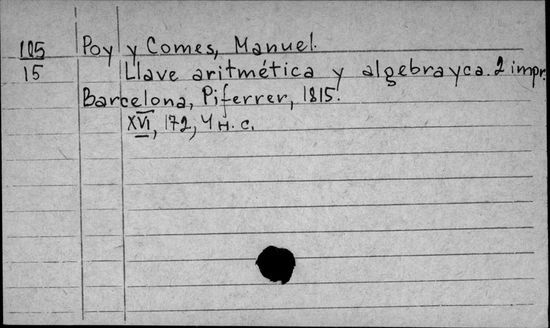 105 Poy y Comes, Manuel.
15 Llave aritmética y algebrayca. 2 impr.
Barcelona, Piferrer, 1815.
XVI, 172, 4 H. C.